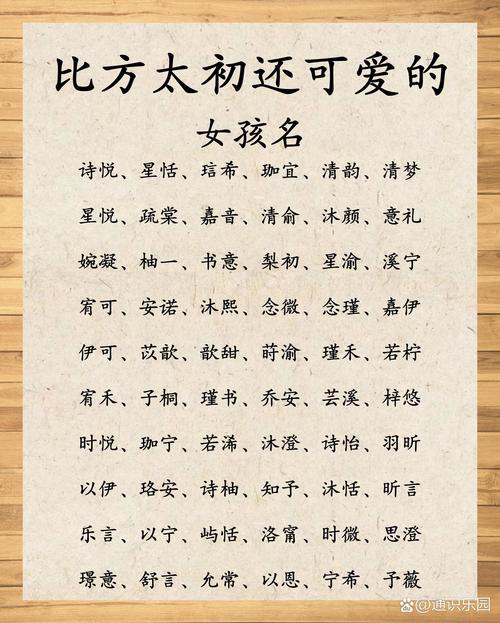 比方太初还可爱的
女孩名
诗悦、星恬、琂希、珈宜、清韵、清梦
星悦、疏棠、嘉音、清俞、沐颜、意礼
婉凝、柚一、书意、梨初、星渝、溪宁
宥可、安诺、沐熙、念微、念瑾、嘉伊
伊可、苡歆、歆甜、莳渝、瑾禾、若柠
宥禾、子桐、瑾书、乔安、芸溪、梓悠
时悦、珈宁、若浠、沐澄、诗怡、羽昕
以伊、珞安、诗柚、知予、沐恬、昕言
乐言、以宁、屿恬、洛甯、时微、思澄
璟意、舒言、允常、以恩、宁希、予薇
通识乐园